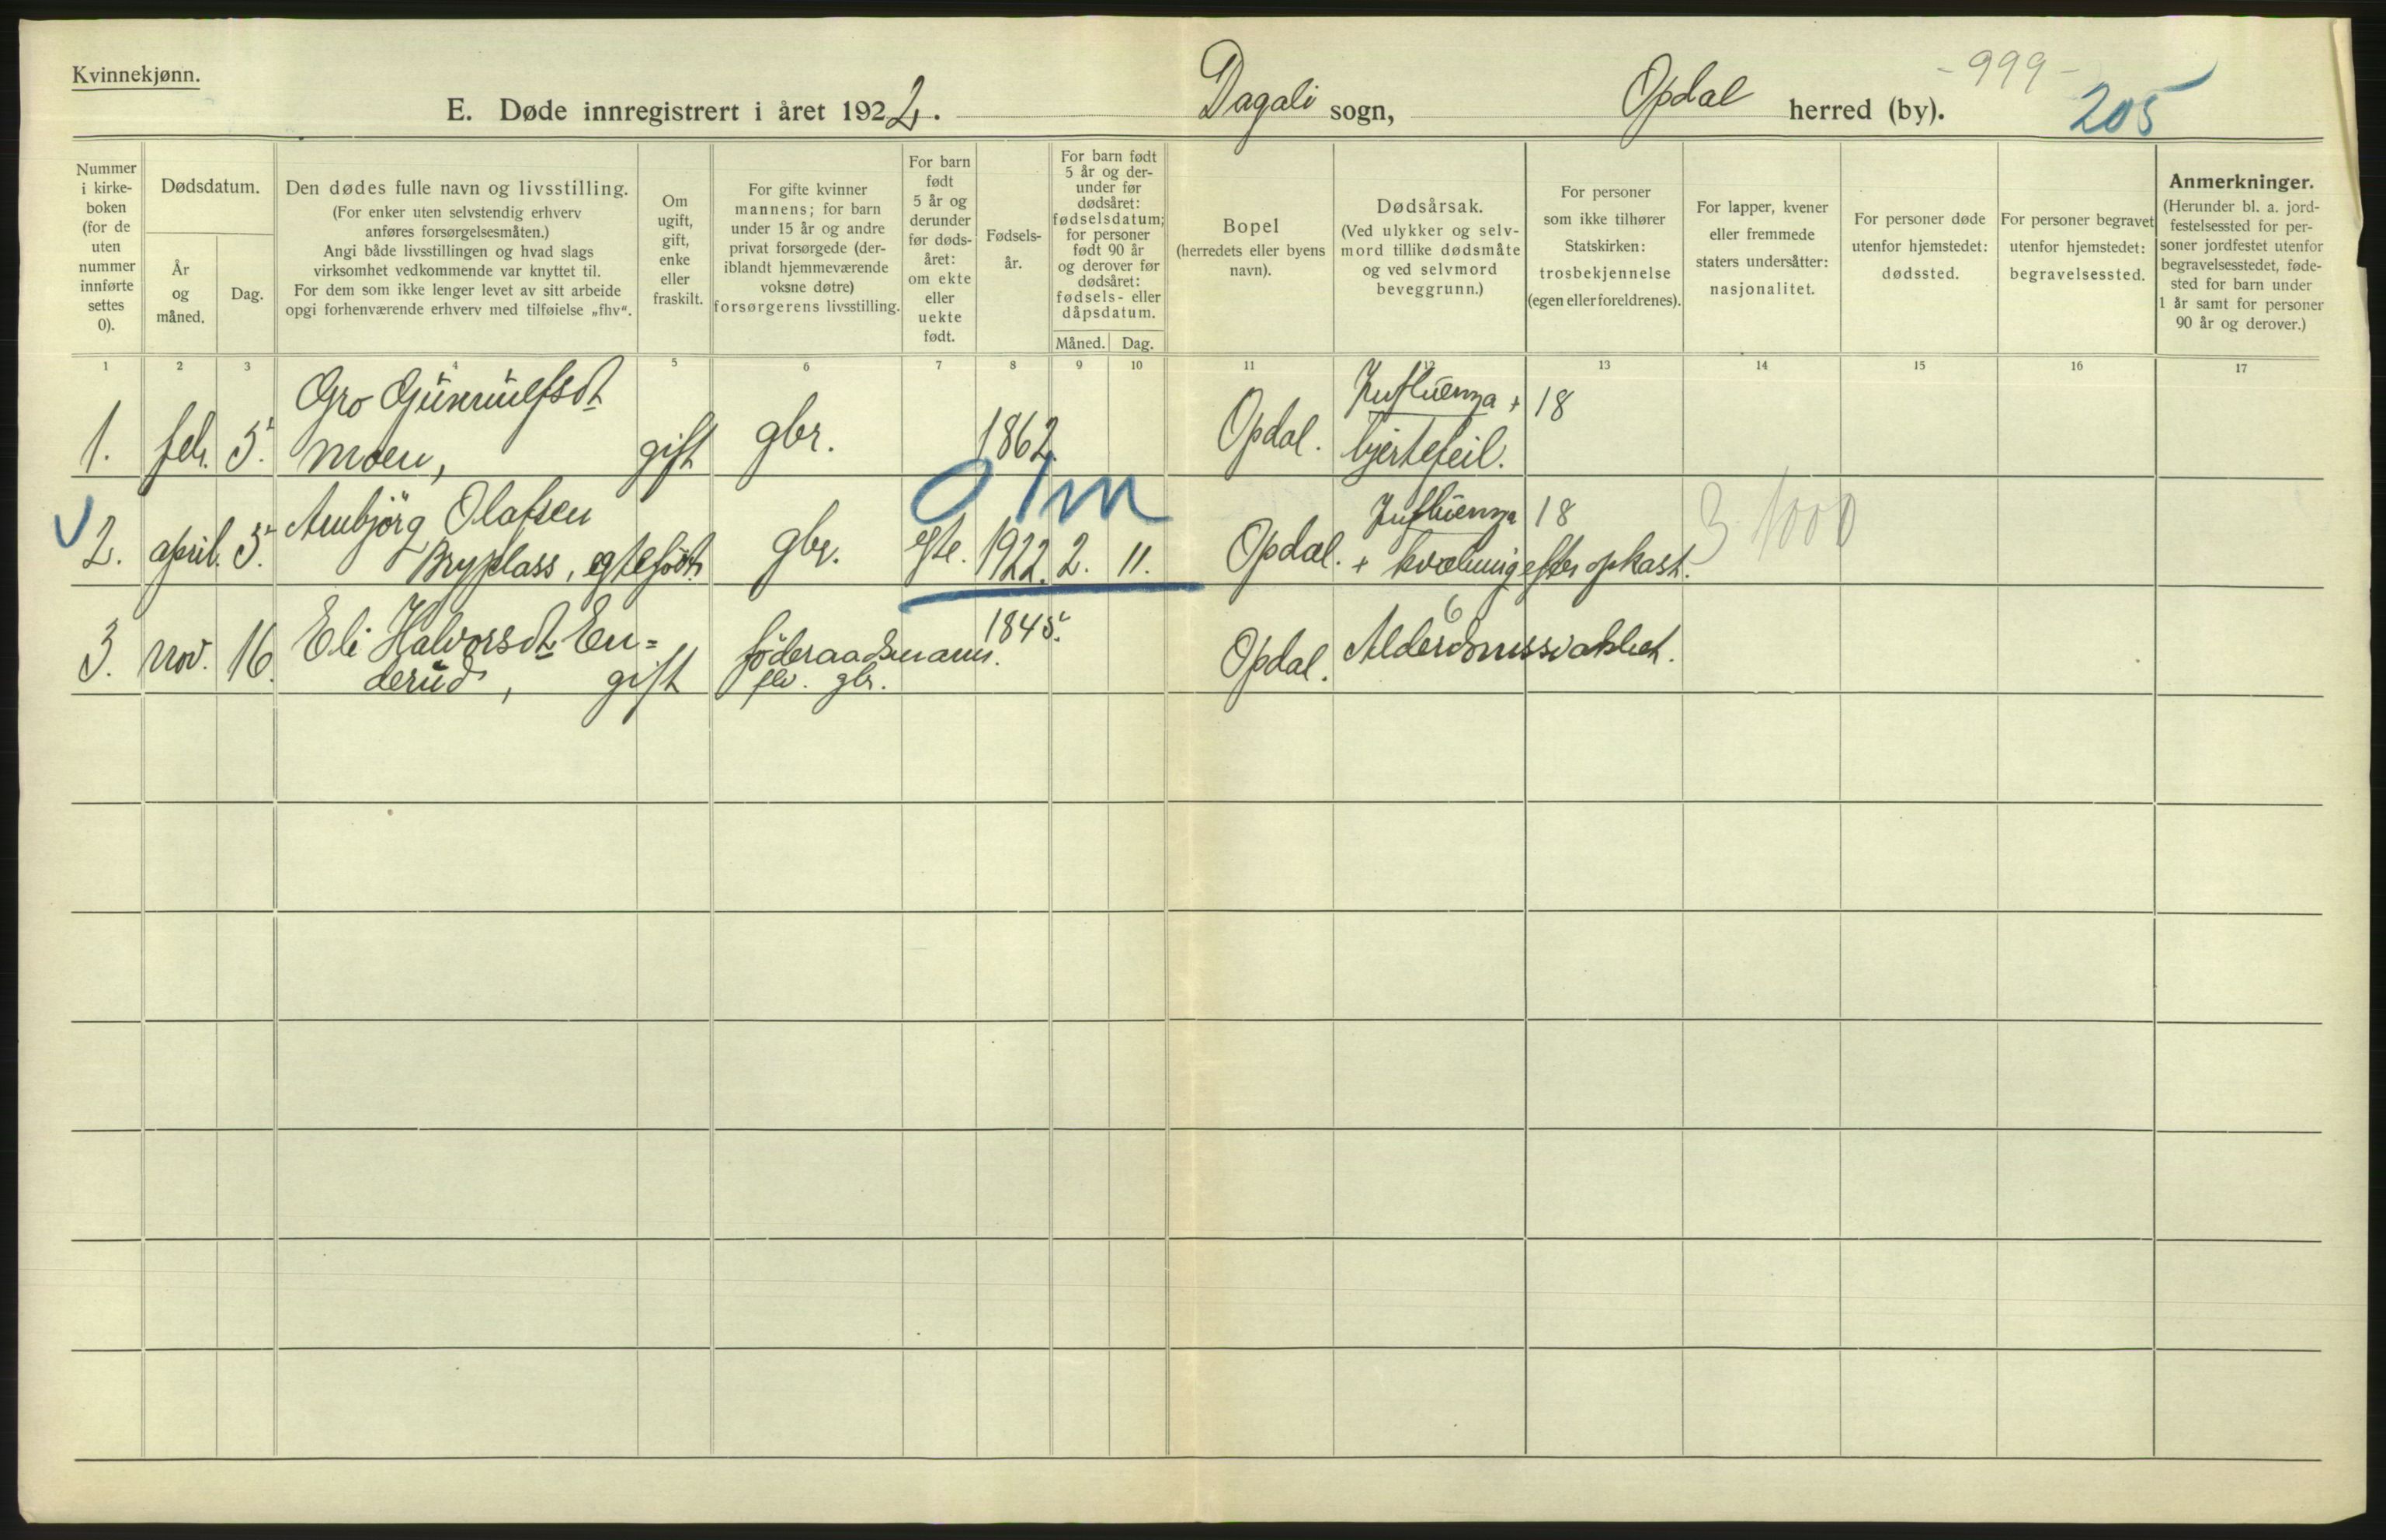 Kvinnekjønn.
E. Døde innregistrert i året 1922. Dagali sogn, Opdal herred (by).
- 999 -
205
Nummer i kirkeboken (for de uten nummer innførte settes 0).
Dødsdatum.
År og måned.
Dag.
Den dødes fulle navn og livsstilling.
(For enker uten selvstendig erhverv
anføres forsørgelsesmåten.)
Angi både livsstillingen og hvad slags
virksomhet vedkommende var knyttet til.
For dem som ikke lenger levet av sitt arbeide
opgi forhenværende erhverv med tilføielse „fhv“.
Om
ugift,
gift,
enke
eller
fraskilt.
For gifte kvinner
mannens; for barn
under 15 år og andre
privat forsørgede (der-
iblandt hjemmeværende
voksne døtre)
forsørgerens livsstilling.
For barn
født
5 år og
derunder
før døds-
året:
om ekte
eller
uekte
født.
Fødsels-
år.
For barn født
5 år og der-
under før
dødsåret:
fødselsdatum;
for personer
født 90 år
og derover før
dødsåret:
fødsels- eller
dåpsdatum.
Måned.
Dag.
Bopel
(herredets eller byens
navn).
Dødsårsak.
(Ved ulykker og selv-
mord tillike dødsmåte
og ved selvmord
beveggrunn.)
For personer
som ikke tilhører
Statskirken:
trosbekjennelse
(egen eller foreldrenes).
For lapper, kvener
eller fremmede
staters undersåtter:
nasjonalitet.
For personer døde
utenfor hjemstedet:
dødssted.
For personer begravet
utenfor hjemstedet:
begravelsessted.
Anmerkninger.
(Herunder bl. a. jord-
festelsessted for per-
soner jordfestet utenfor
begravelsesstedet, føde-
sted for barn under
1 år samt for personer
90 år og derover.)
1 2 3 4 5 6 7 8 9 10 11 12 13 14 15 16 17
Gro Gunnulfsdt Influenza + 18
1. febr. 5. Moen, gift gbr. 1862. Opdal. hjertefeil.
0 1m
Ambjörg Olafsen Influenza 18 3 1000
2. april. 5. Bryplass, egtefödt gbr. egte. 1922. 2. 11. Opdal. + kvælning efter opkast.
Eli Halvorsdt En= föderaadsmann. 1845. 6
3. nov. 16. derud, gift flv. gbr. Opdal. Alderdomssvakhet.